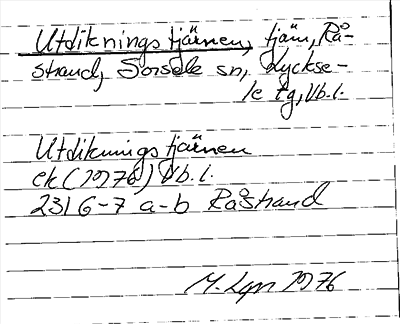 Utdikningstjärnen, tjärn, Rå-
strand, Sorsele sn, Lycksе-
le tg, Vb.l.
Utdikningstjärnen
ek (1976) Vb.l.
231 G-7 a-b Råstrand
M. Lgn 1976